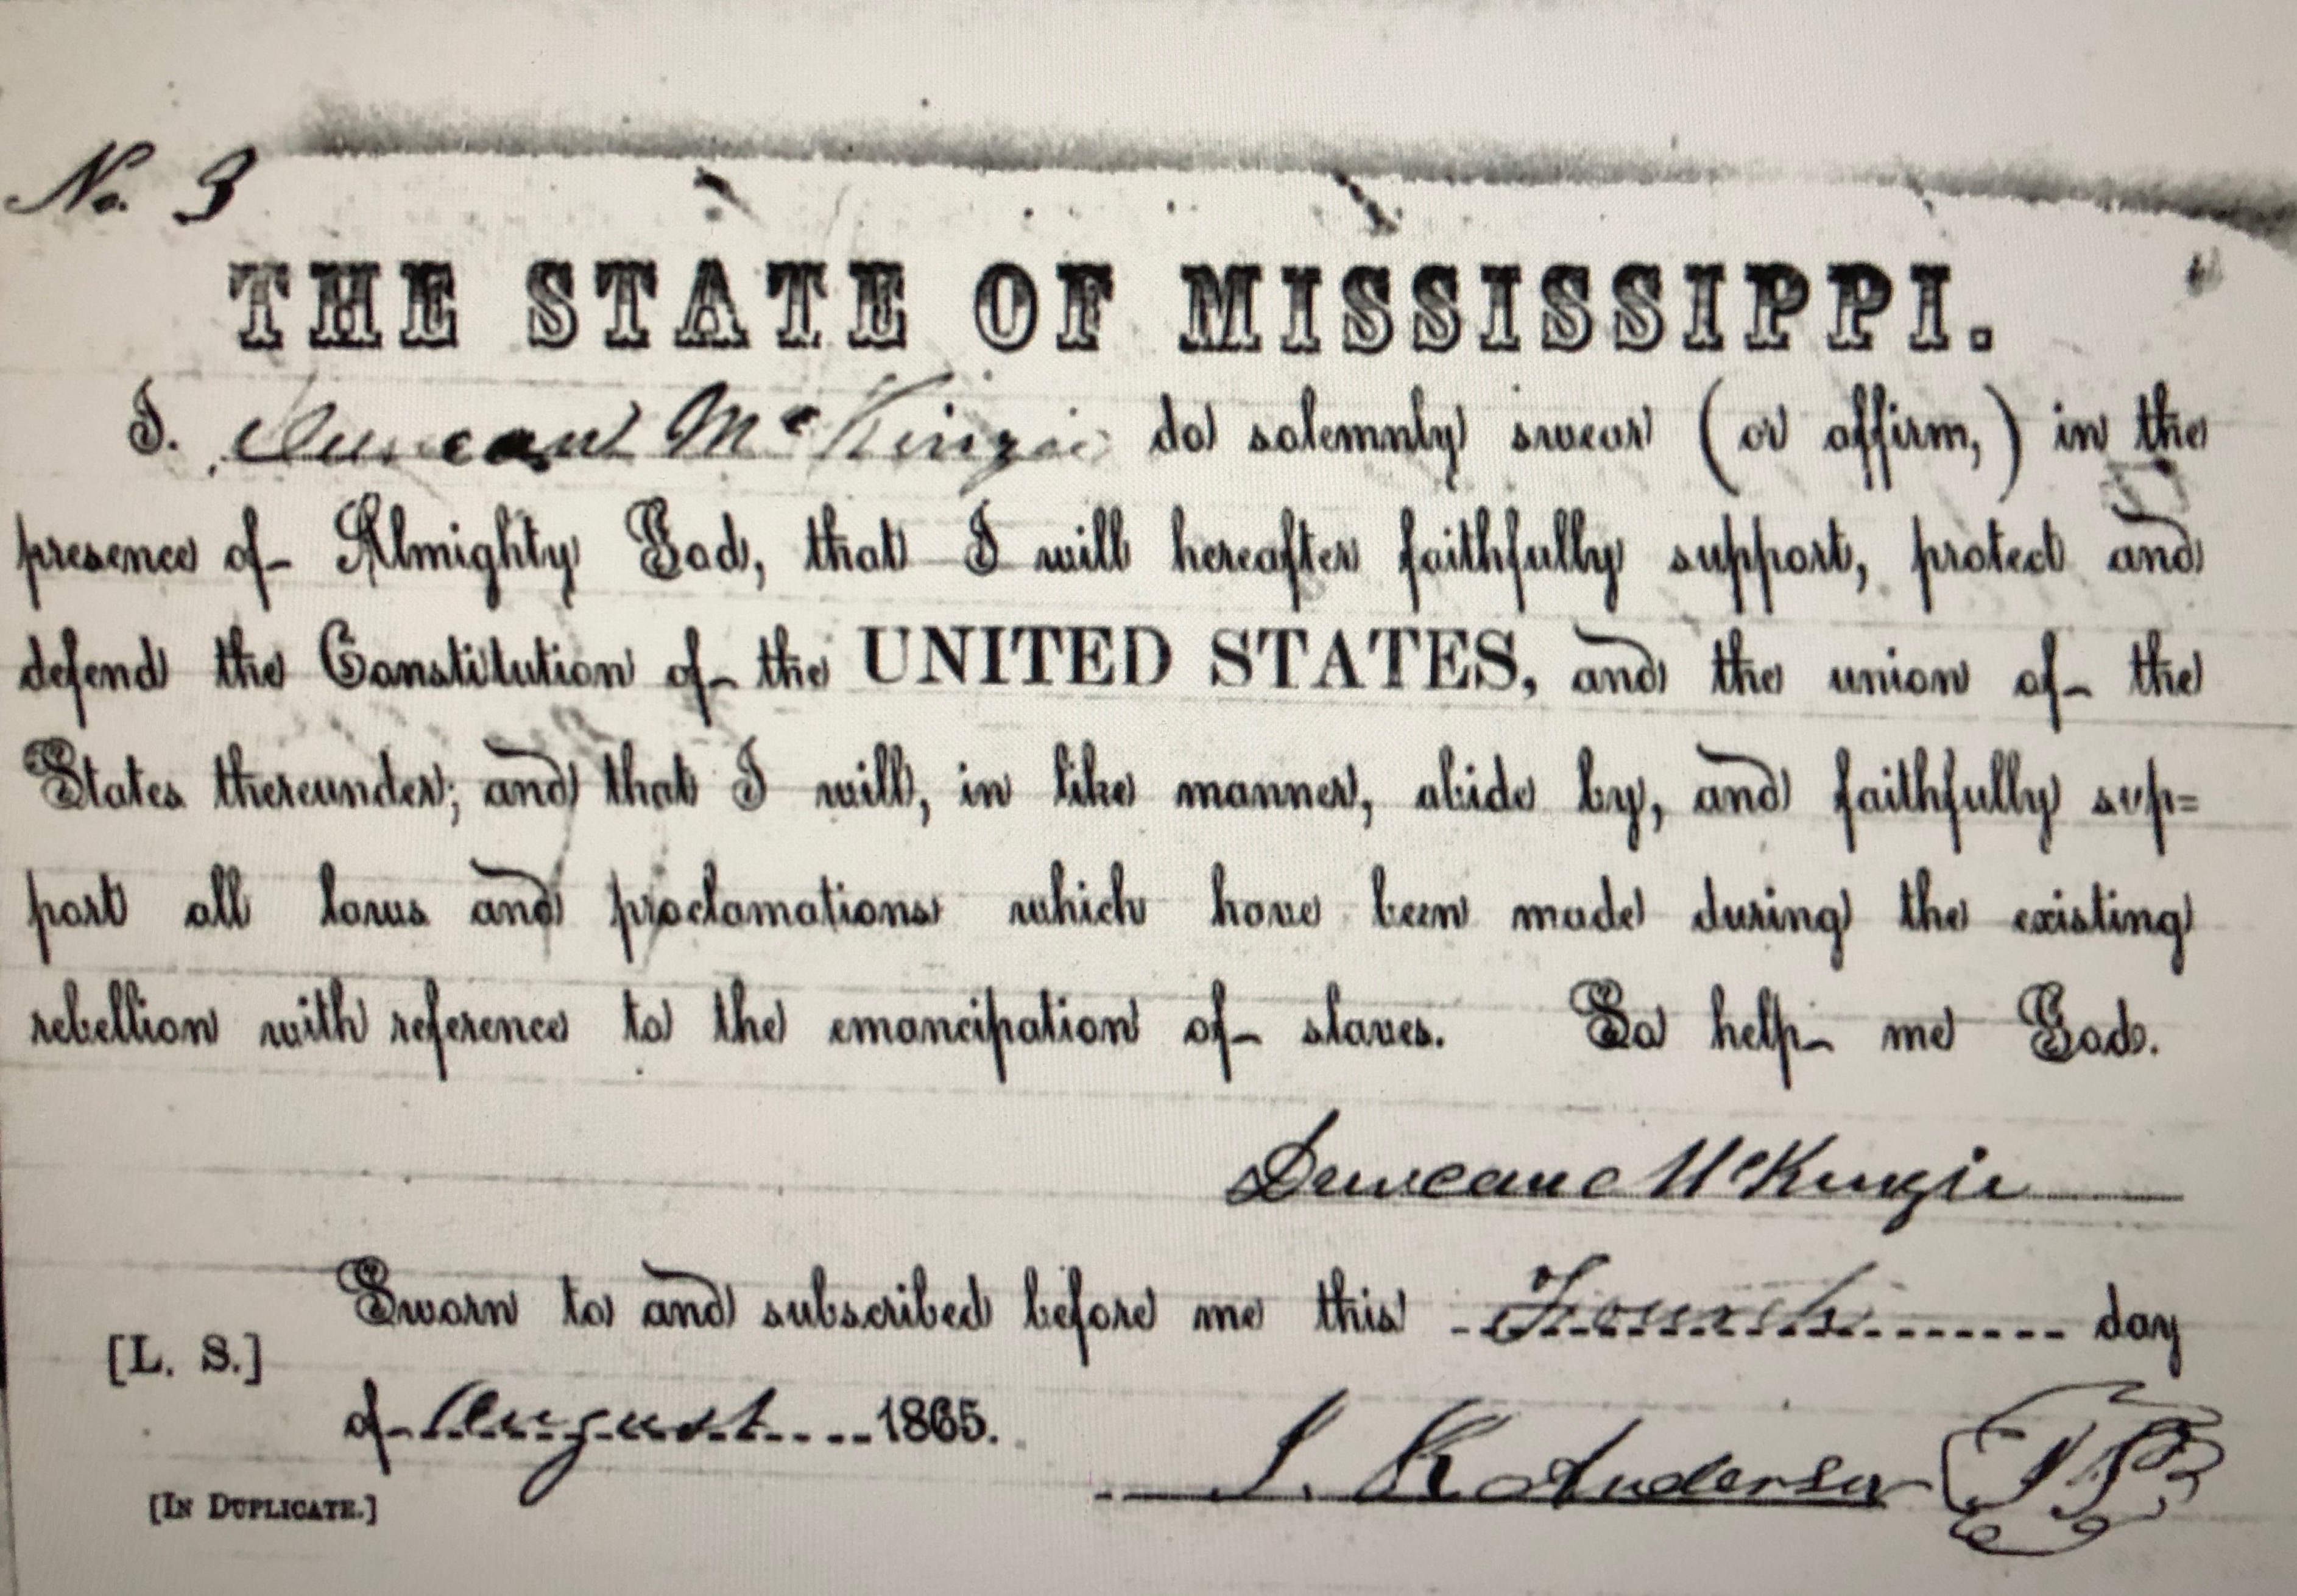 No. 3
THE STATE OF MISSISSIPPI.
I. Duncan McKinzie do solemnly swear (or affirm,) in the
presence of Almighty God, that I will hereafter faithfully support, protect and
defend the Constitution of the UNITED STATES, and the union of the
States thereunder; and that I will, in like manner, abide by, and faithfully sup=
port all laws and proclamations which have been made during the existing
rebellion with reference to the emancipation of slaves. So help me God.
Duncan McKinzie
Sworn to and subscribed before me this Fourth day
[L. S.]
of August 1865.
K Anderson
[IN DUPLICATE.]